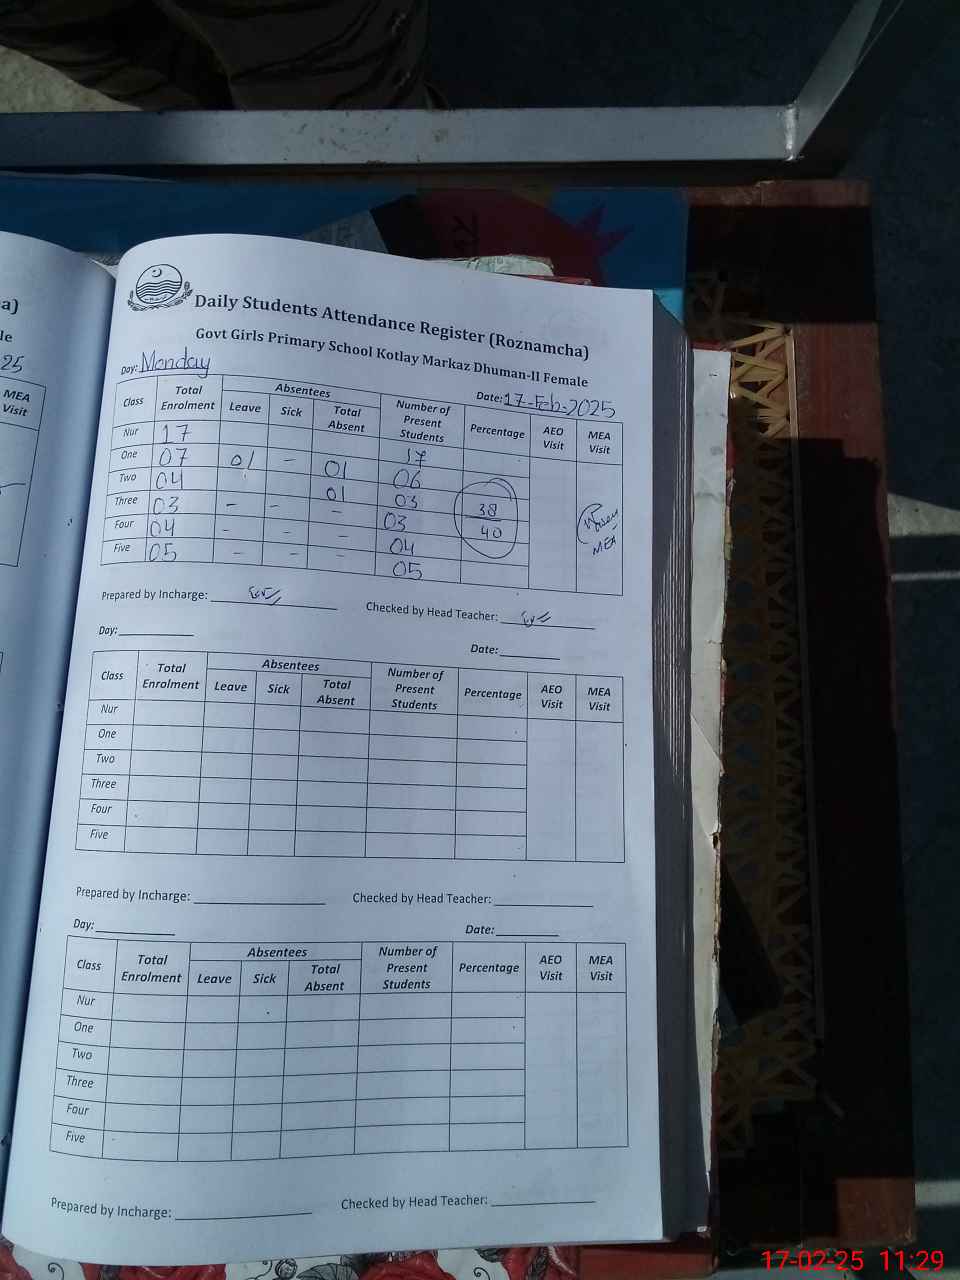 a)
le
25
MEA
Visit
Daily Students Attendance Register (Roznamcha)
Govt Girls Primary School Kotlay Markaz Dhuman-II Female
Day: Monday
Date: 17-Feb-2025
Class Total Enrolment Absentees Leave Sick Total Absent Number of Present Students Percentage AEO Visit MEA Visit
Nur 17 17
One 07 01 - 01 06
Two 04 01 03
Three 03 - - - 03 38
Four 04 - - - 04 40 MEA
Five 05 - - - 05
Prepared by Incharge: Checked by Head Teacher:
Day: Date:
Class Total Enrolment Absentees Leave Sick Total Absent Number of Present Students Percentage AEO Visit MEA Visit
Nur
One
Two
Three
Four
Five
Prepared by Incharge: Checked by Head Teacher:
Day: Date:
Class Total Enrolment Absentees Leave Sick Total Absent Number of Present Students Percentage AEO Visit MEA Visit
Nur
One
Two
Three
Four
Five
Prepared by Incharge: Checked by Head Teacher:
17-02-25 11:29